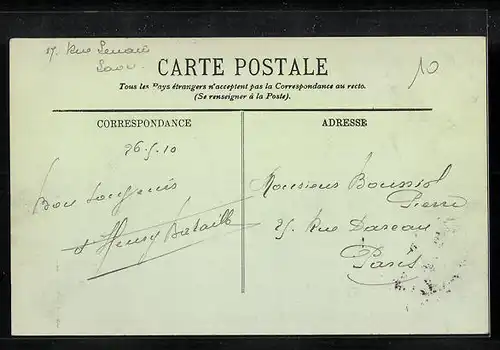 17. Rue
Laon.
CARTE POSTALE
10
Tous les Pays étrangers n'acceptent pas la Correspondance au recto.
(Se renseigner à la Poste).
CORRESPONDANCE
ADRESSE
26-5-10
Bon souvenir
d'Henry Bataille
Monsieur Boussiol
Pierre
25 Rue Dareau
Paris